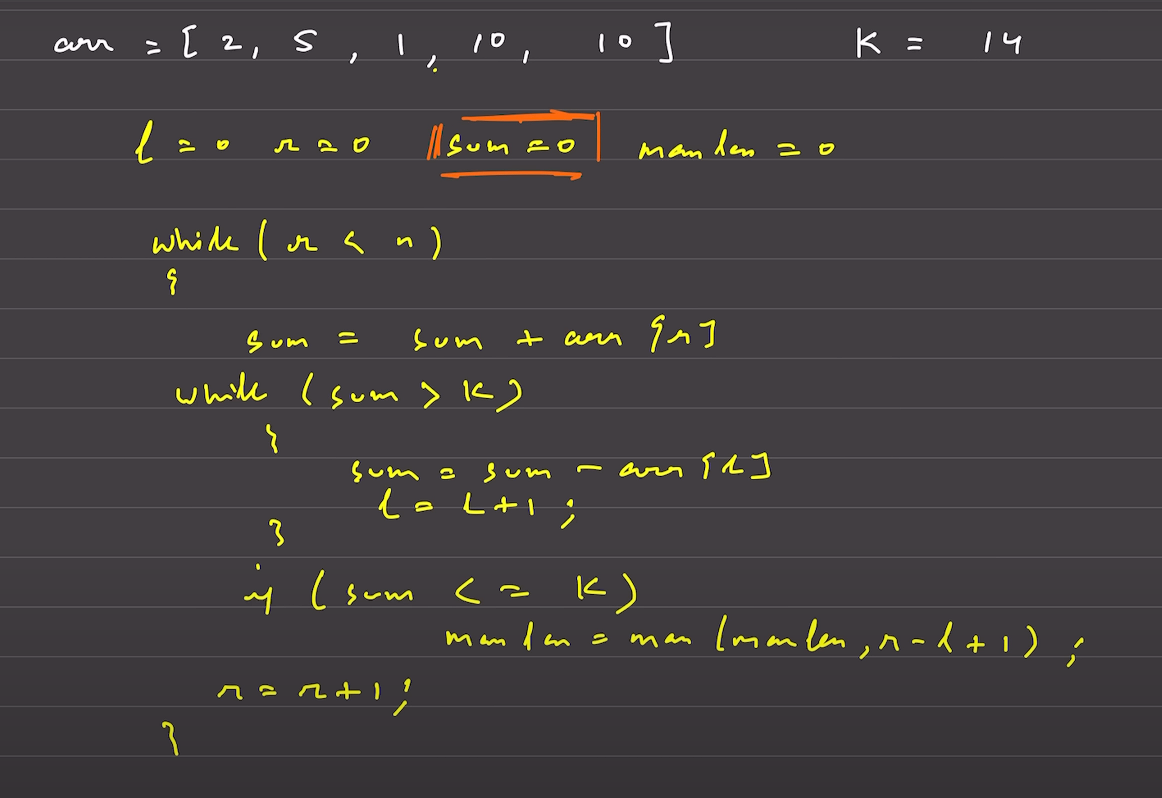 arr = [ 2, 5, 1, 10, 10 ] K = 14
l = 0 r = 0 sum = 0 maxlen = 0
while ( r < n )
{
sum = sum + arr [r]
while ( sum > K )
{
sum = sum - arr [l]
l = l + 1 ;
}
if ( sum <= K )
maxlen = max ( maxlen, r - l + 1 ) ;
r = r + 1 ;
}